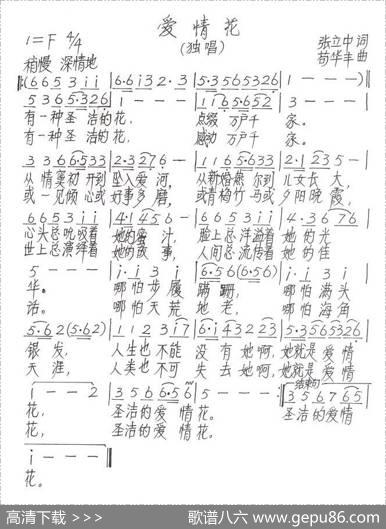 爱情花
(独唱)
1=F 4/4
张立中 词
苟华丰 曲
稍慢 深情地
(6 6 5 3 i i | 6·6 i 3 2·3 | 5·3 5 6 5 3 2 6 | 1 - - -)
5 3 6 5·3 2 6 | 1 - - - | 1 1 6 5·6 5 2 | 3 - - -
有一种圣洁的花, 点缀万户千家。
有一种圣洁的花, 感动万户千家。
3 3 6 6·5 3 3 | 2·3 2 7 6 - | 1 1 6 5·6 3 3 | 2·1 2 3 5 -
从情窦初开到坠入爱河, 从新婚燕尔到儿女长大,
或一见倾心或好事多磨, 或青梅竹马或夕阳晚霞,
6 6 5 3 i i | 4·1 4 5 6 - | 6 6 5 3 i i | 4·3 6 7 6
心头总吮吸着她的蜜汁, 脸上总洋溢着她的光
世上总演绎着她的故事, 人间总流传着她的佳
5 - - - | i·i 3 i | 6·5 6 (6·5 6) | i·i 3 i
华。 哪怕步履蹒跚, 哪怕满头
话。 哪怕天荒地老, 哪怕海角
5·6 2 (5·6 2) | 1 1 2 3 i 7 | 6·i 4 3 2 2 3 | 5·3 5 6 5 3 2 6
银发, 人生也不能没有她啊,她就是爱情
天涯, 人类也不可失去她啊,她就是爱情
结束句
1 - - 2 | 3 5 6 6·5 6 | 5 - - - :| 3 5 6 7 6 5
花, 圣洁的爱情花。 圣洁的爱情
花, 圣洁的爱情花。
i - - - ‖
花。
高清下载 >>> | 歌谱八六 www.gepu86.com